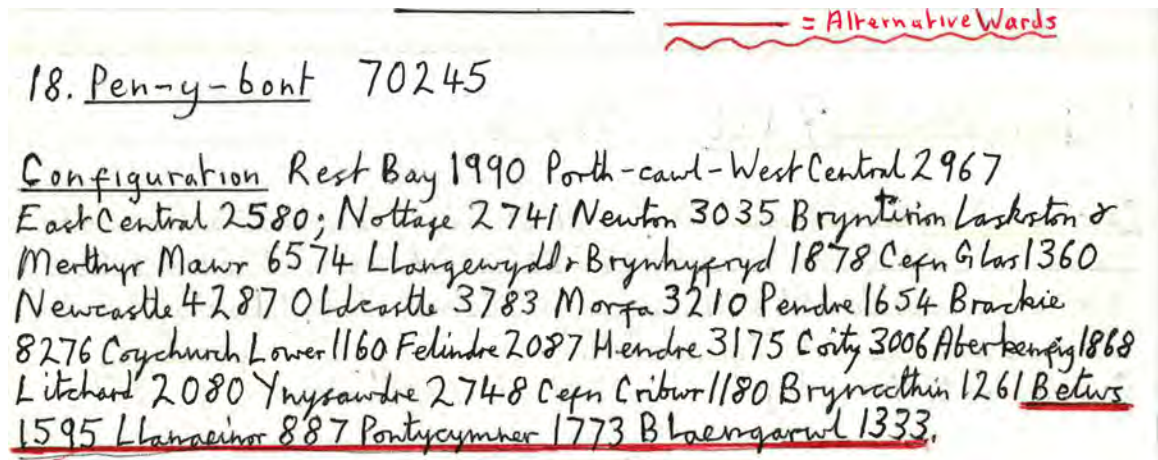 = Alternative Wards
18. Pen-y-bont 70245
Configuration Rest Bay 1990 Porth-cawl-West Central 2967
East Central 2580; Nottage 2741 Newton 3035 Bryntirion Laskston &
Merthyr Mawr 6574 Llangewydd & Brynhyfryd 1878 Cefn Glas 1360
Newcastle 4287 Oldcastle 3783 Morfa 3210 Pendre 1654 Brackie
8276 Coychurch Lower 1160 Felindre 2087 Hendre 3175 Coity 3006 Aberkenfig 1868
Litchard 2080 Ynysawdre 2748 Cefn Cribwr 1180 Bryncethin 1261 Betws
1595 Llangeinor 887 Pontycymner 1773 Blaengarwl 1333.